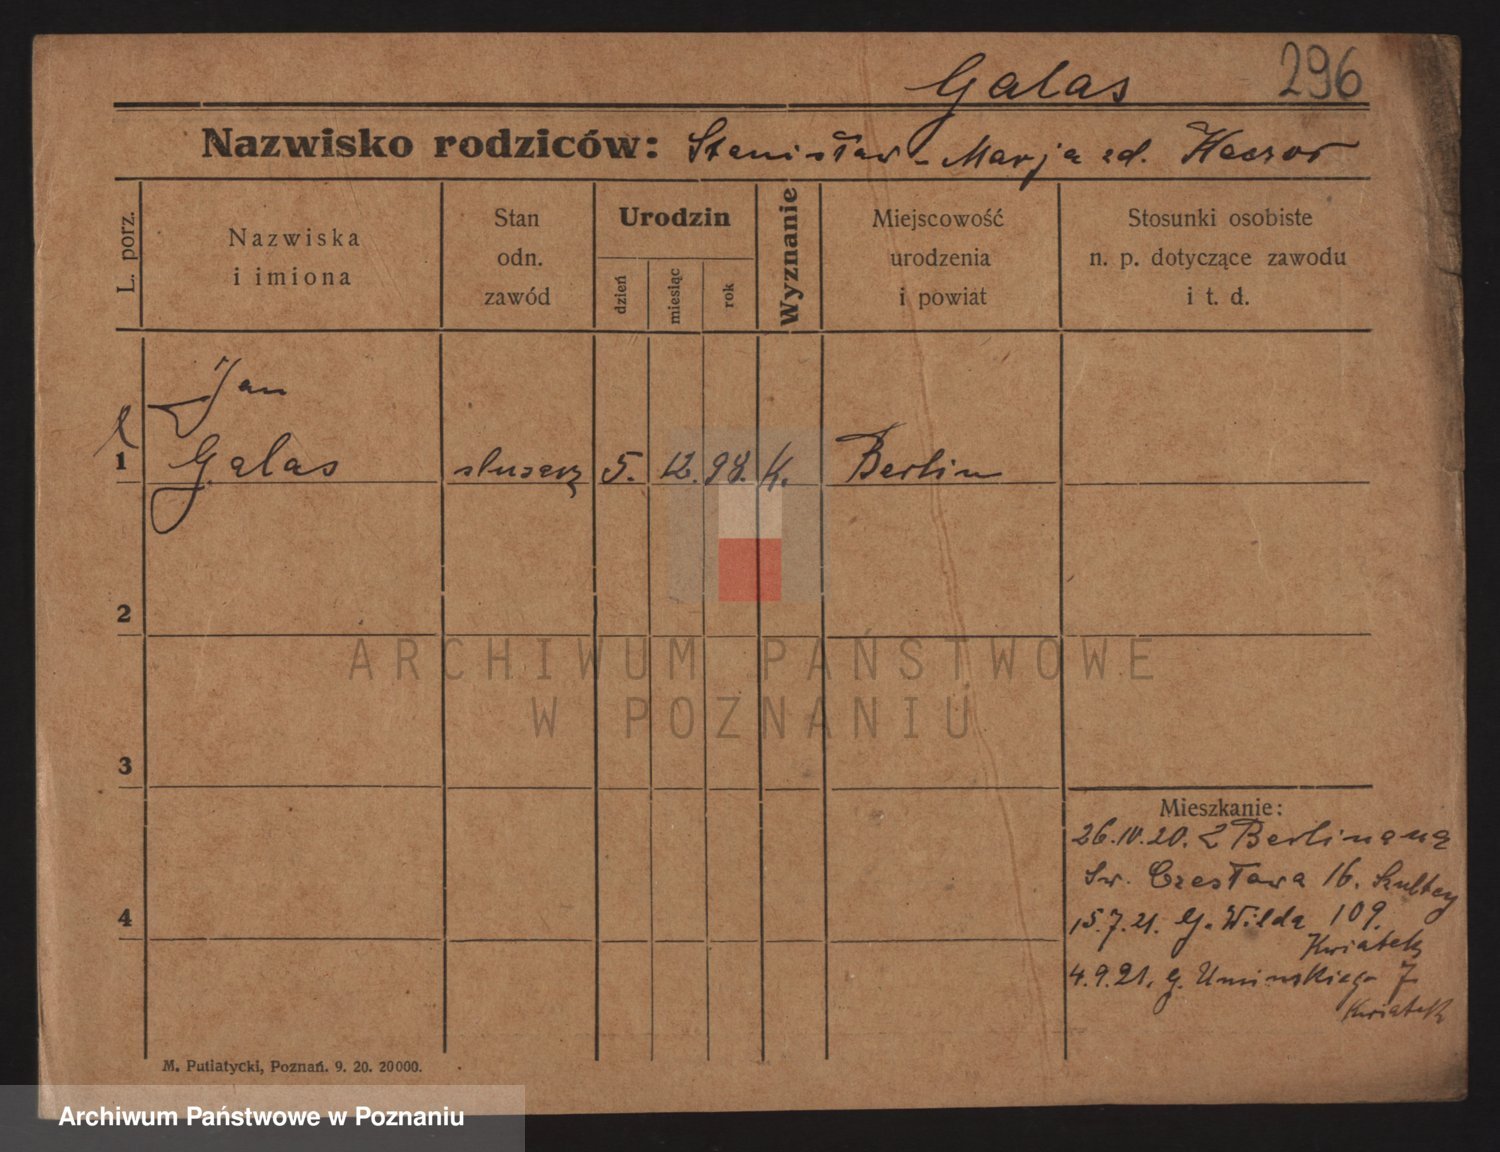 Galas 296
Nazwisko rodziców: Stanisław - Marja zd. Kaczor
L. porz.
Nazwiska
i imiona
Stan
odn.
zawód
Urodzin
dzień
miesiąc
rok
Wyznanie
Miejscowość
urodzenia
i powiat
Stosunki osobiste
n. p. dotyczące zawodu
i t. d.
Jan
1 Galas slusarz 5. 12. 98. K. Berlin
2
ARCHIWUM PAŃSTWOWE
W POZNANIU
3
Mieszkanie:
26.10.20. z Berlina na
Św. Czesława 16.
4
15.7.21. G. Wilda 109.
Kwiatek
4.9.21. G. Umińskiego 7
Kwiatek
M. Putiatycki, Poznań. 9. 20. 20000.
Archiwum Państwowe w Poznaniu